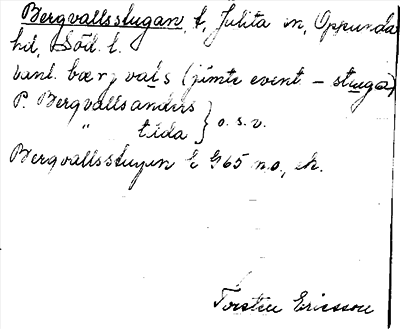 Bergvallsstugan, t, Julita sn, Oppunda
hd, Söd. l.
vanl. bærjvals (jämte event. – stuga)
P. Bergvallsanders } o. s. v.
" tida
Bergvallsstugan E G65 n.o., ek.
Torsten Ericsson